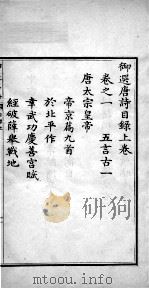 御選唐詩目錄上卷
卷之一 五言古一
唐太宗皇帝
帝京篇九首
於北平作
幸武功慶善宮賦
經破薛舉戰地
mtoou.info